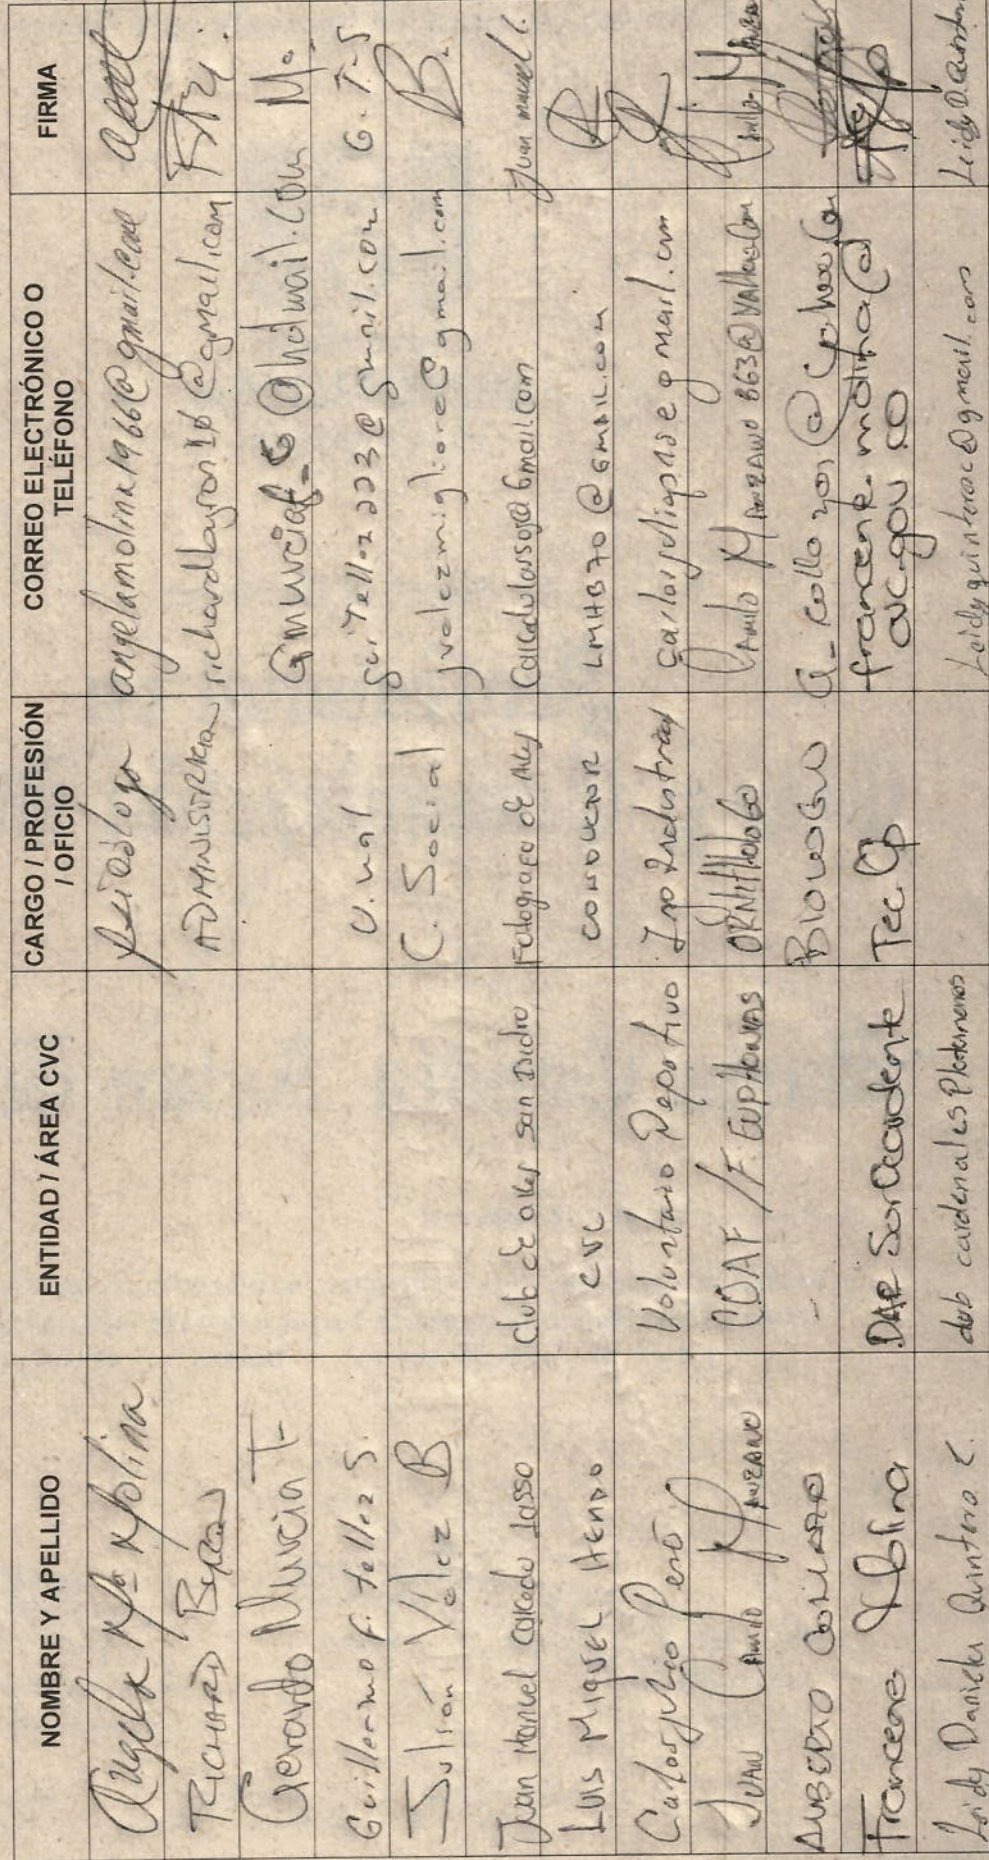 NOMBRE Y APELLIDO | ENTIDAD / ÁREA CVC | CARGO / PROFESIÓN / OFICIO | CORREO ELECTRÓNICO O TELÉFONO | FIRMA
Angela Mª Molina | | psicóloga | angelamolina1966@gmail.com
RICHARD | | | richardbayron16@gmail.com
Gerardo Murcia T | | | Gmurciaf_6@hotmail.com | M.
Guillermo F. Tellez S. | | U. nal | guitellez223@gmail.com | G. T. S
Julián Vélez B | | C. Social | jvelezmigliore@gmail.com | B.
Juan Manuel Caicedo Lasso | Club de aves san Isidro | Fotografo de Aves | | Juan manuel C.
LUIS MIGUEL HENAO | CVC | CONDUCTOR | LMHB70@GMAIL.COM
Carlos Julio | Voluntario Deportivo | Ing Industrial
JUAN Camilo MANZANO | COAF / F. EUPHONIAS | ORNITHOLOGO | Camilo MANZANO
COLLAZO | - | BIOLOGO
Francene Molina | DAR Suroccidente | Tec. Op | francene.molina@cvc.gov.co
Leidy Daniela Quintero C. | club cardenales Plataneros | | Leidyquinteroc@gmail.com | Leidy D. Quintero